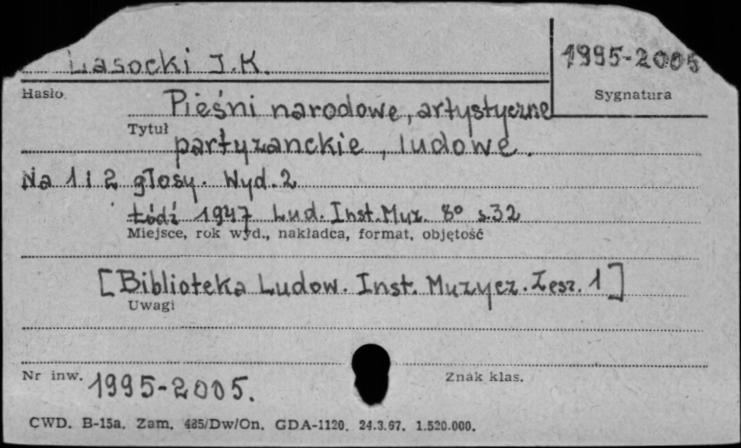 Lasocki J.K.
1995-2005
Hasło
Sygnatura
Pieśni narodowe, artystyczne
Tytuł
partyzanckie, ludowe.
Na 1 i 2 głosy. Wyd. 2
Łódź 1947 Lud. Inst. Muz. 8° s. 32
Miejsce, rok wyd., nakładca, format, objętość
[Biblioteka Ludow. Inst. Muzycz. Zesz. 1]
Uwagi
Nr inw. 1995-2005.
Znak klas.
CWD. B-15a. Zam. 485/Dw/On. GDA-1120. 24.3.67. 1.520.000.